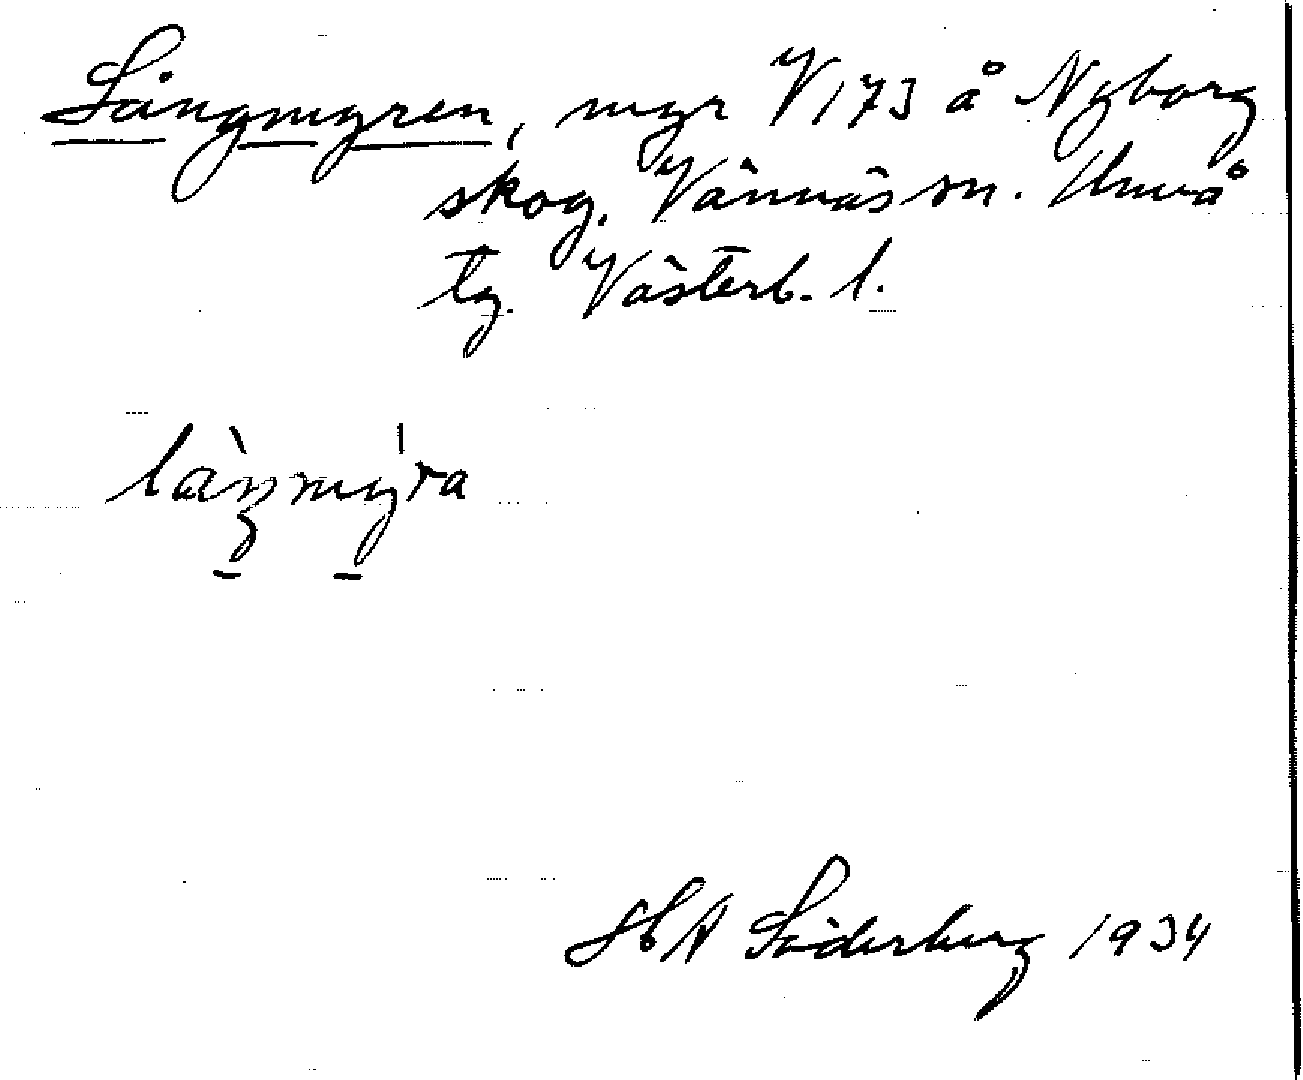 Långmyren, myr V173 å Nyborg
skog. Vännäs sn. Umeå
tg. Västerb. l.
làŋmy̍ra
HA Söderberg 1934